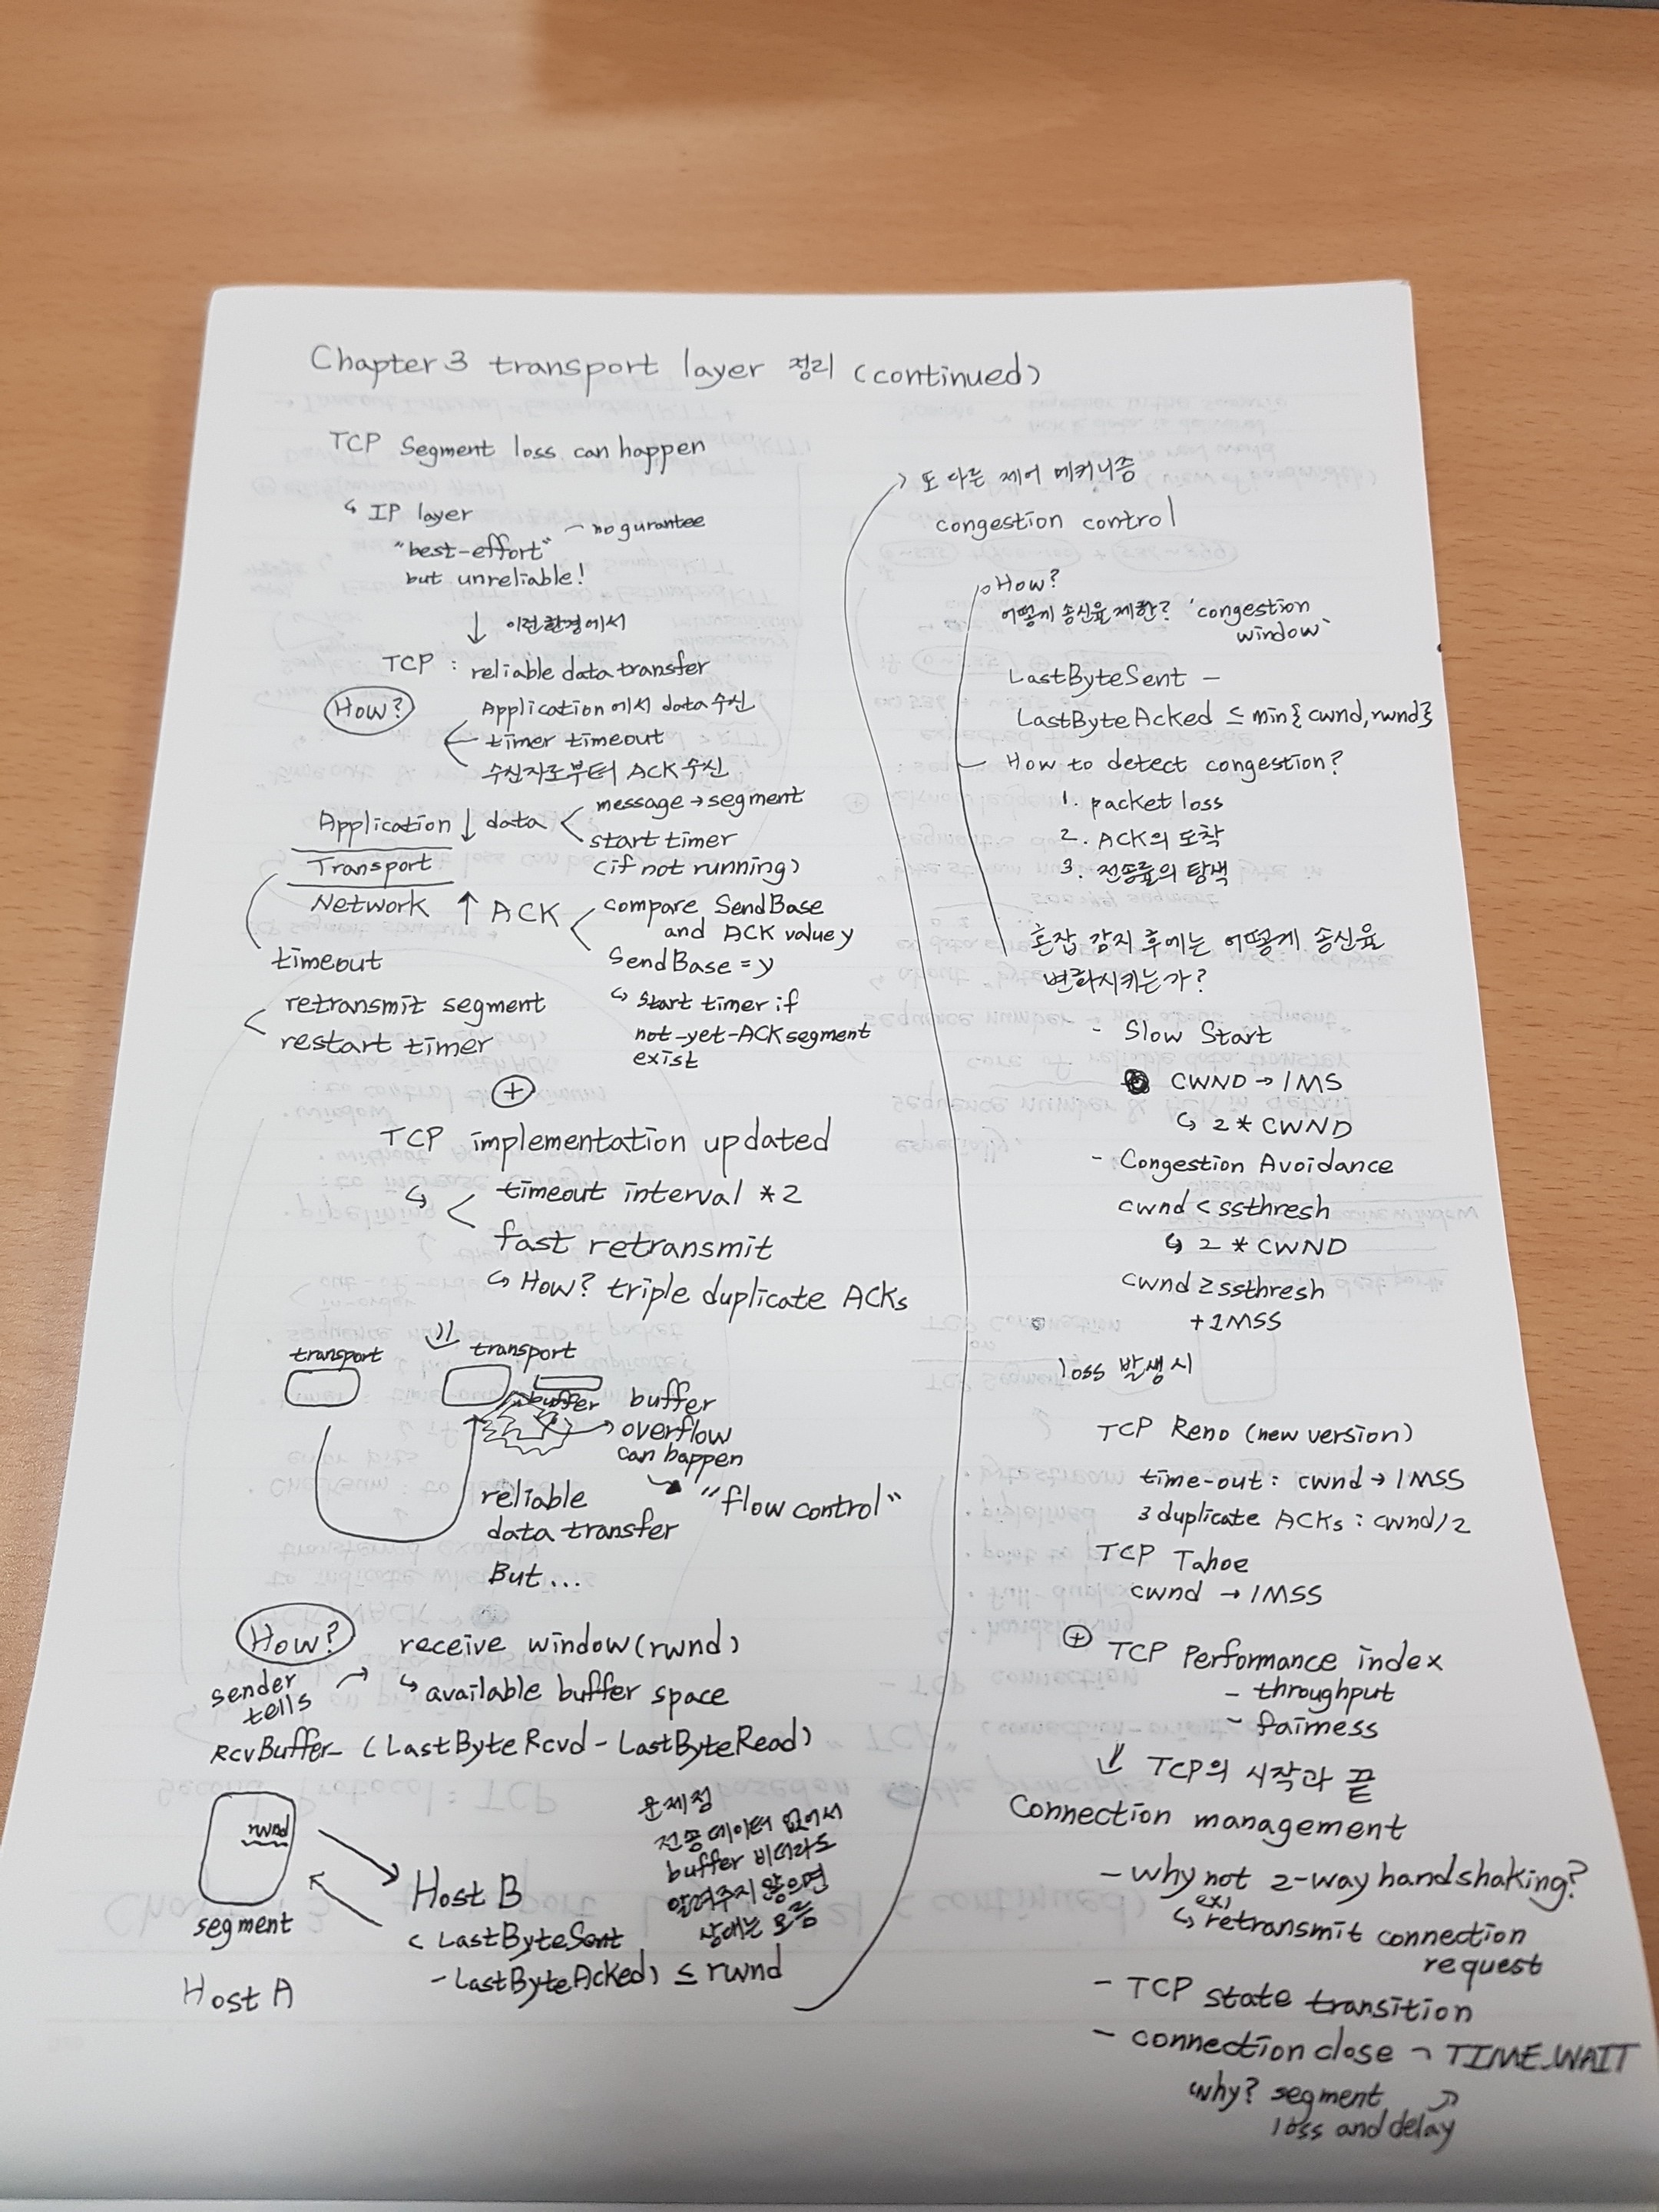 Chapter 3 transport layer 정리 (continued)
TCP Segment loss can happen
↳ IP layer
"best-effort" - no gurantee
but unreliable!
↓ 이런 환경에서
TCP : reliable data transfer
How?
Application에서 data 수신
timer timeout
수신자로부터 ACK 수신
Application ↓ data < message → segment
start timer
(if not running)
Transport
Network ↑ ACK < compare SendBase
and ACK value y
SendBase = y
↳ start timer if
not-yet-ACK segment
exist
timeout
< retransmit segment
restart timer
⊕
TCP implementation updated
↳ < timeout interval * 2
fast retransmit
↳ How? triple duplicate ACKs
transport transport
buffer
buffer
overflow
can happen
→ "flow control"
reliable
data transfer
But...
How? receive window (rwnd)
sender
tells
↳ available buffer space
RcvBuffer - (LastByteRcvd - LastByteRead)
rwnd
segment
Host A
Host B
(LastByteSent
- LastByteAcked) ≤ rwnd
문제점
전송 데이터 없어서
buffer 비더라도
알려주지 않으면
상대는 모름
→ 또 다른 제어 메커니즘
congestion control
How?
어떻게 송신율 제한? 'congestion
window'
LastByteSent -
LastByteAcked ≤ min{cwnd, rwnd}
- How to detect congestion?
1. packet loss
2. ACK의 도착
3. 전송률의 탐색
혼잡 감지 후에는 어떻게 송신율
변화시키는가?
- Slow Start
CWND → 1MS
↳ 2 * CWND
- Congestion Avoidance
cwnd < ssthresh
↳ 2 * CWND
cwnd ≥ ssthresh
+1MSS
loss 발생시
TCP Reno (new version)
time-out: cwnd → 1MSS
3 duplicate ACKs : cwnd/2
TCP Tahoe
cwnd → 1MSS
⊕ TCP Performance index
- throughput
- fairness
⇓ TCP의 시작과 끝
Connection management
- why not 2-way handshaking?
ex)
↳ retransmit connection
request
- TCP state transition
- connection close → TIME_WAIT
why? segment
loss and delay